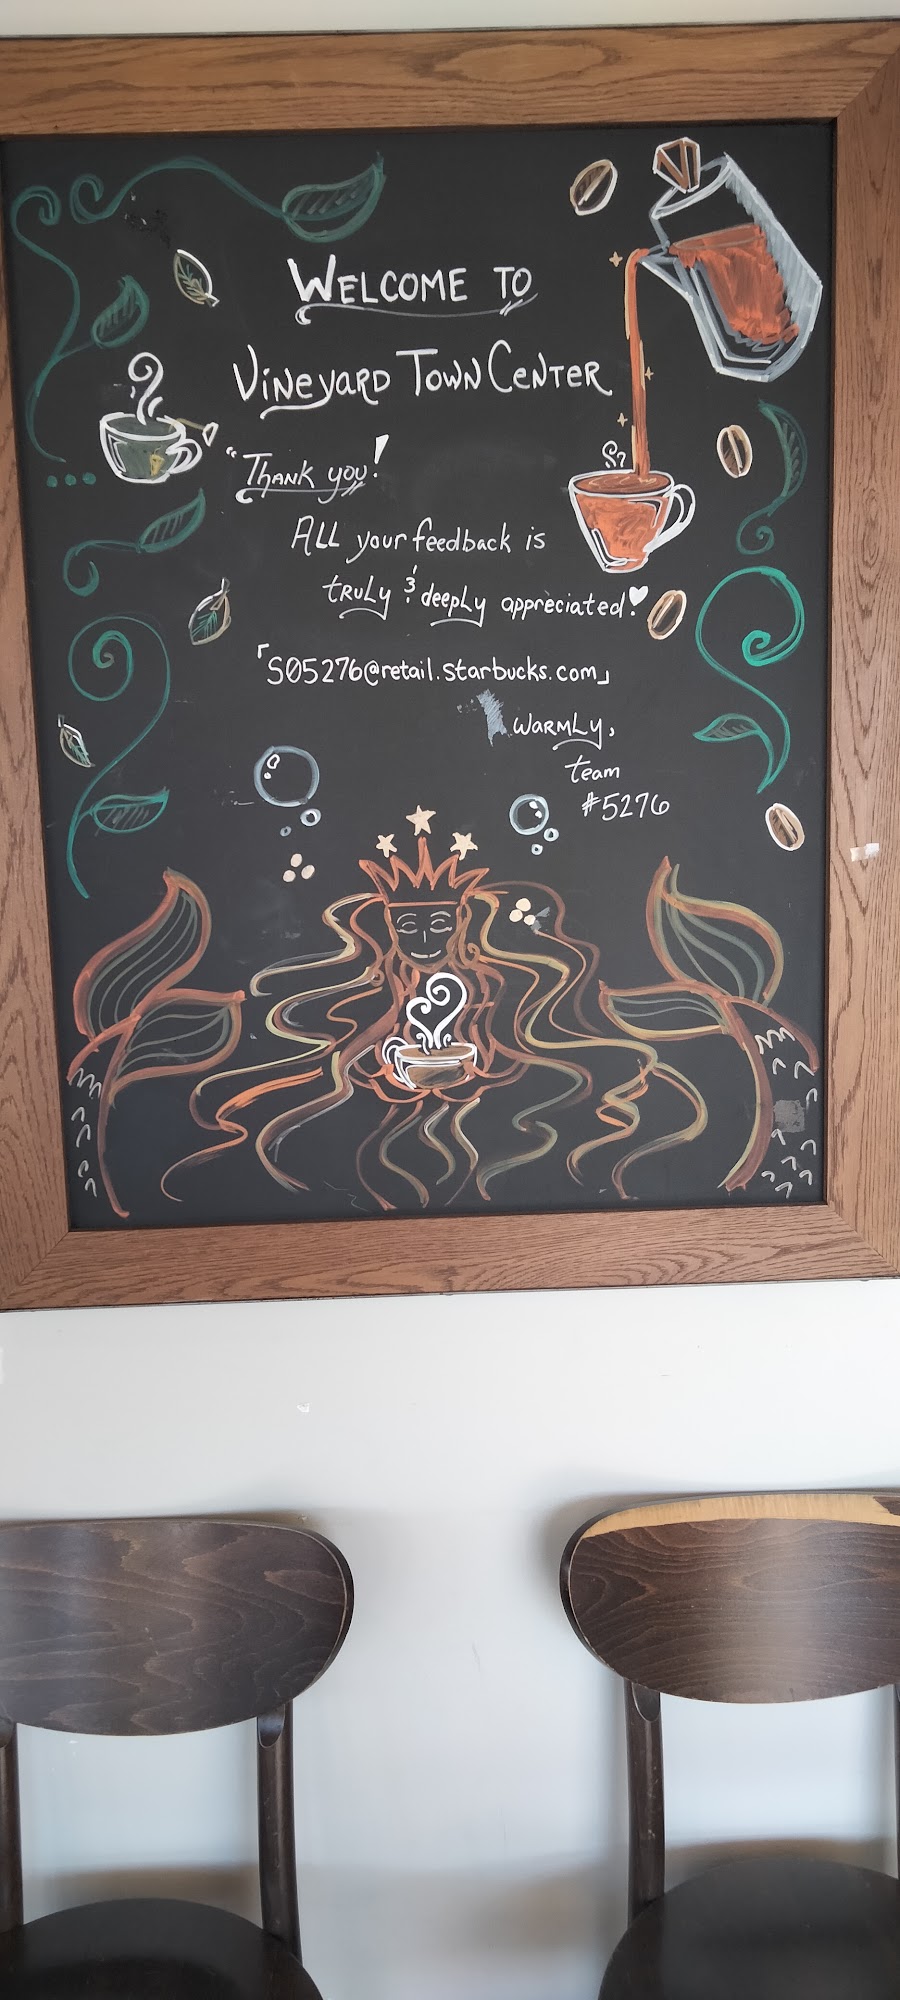 WELCOME TO
VINEYARD TOWN CENTER
"THANK YOU!
ALL your feedback is
truly & deeply appreciated!
「S05276@retail.starbucks.com」
WARMLY,
team
#5276